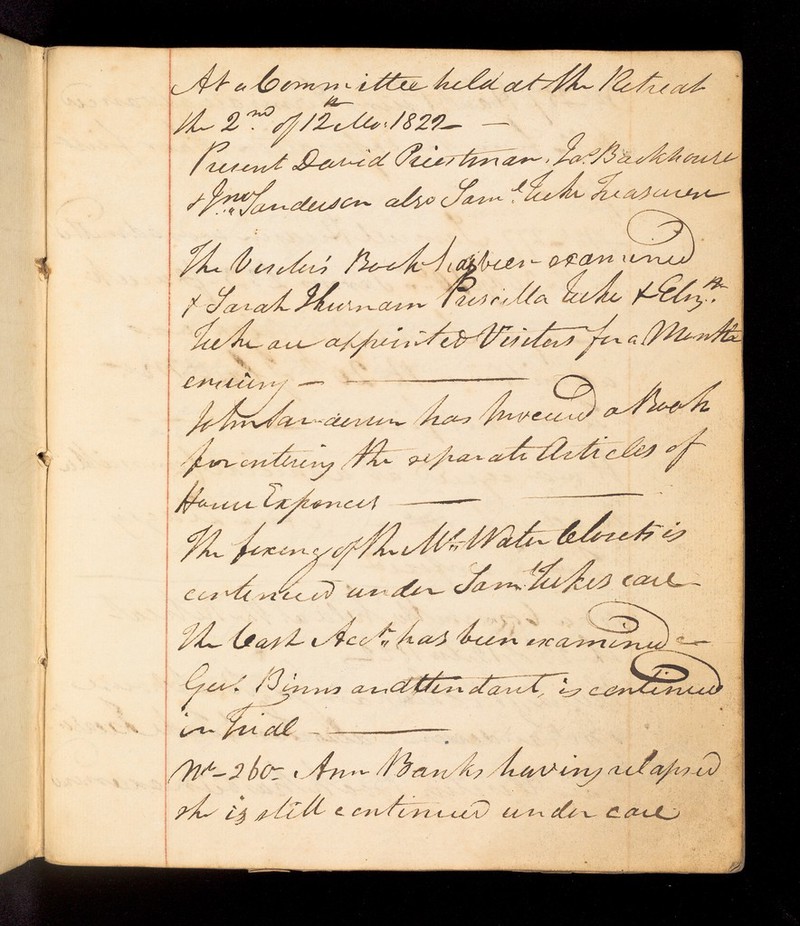 At a Committee held at the Retreat
the 2nd. of 12th Mo. 1822 –
Present David Priestman, Jas. Backhouse
& Jno. Sanderson also Saml. Tuke Treasurer
The Visiter's Book has been examined
& Sarah Thurnam Priscilla Tuke & Elizth.
Tuke are appointed Visitors for a Month
ensuing –
John Sanderson has procured a Book
for entering the separate Articles of
House Expences
The fixing of the Water Closets is
continued under Saml. Tukes care
The Cash Acct. has been examined
Geo. Binns an attendant, is continued
on Trial
No. 260 – Ann Banks having relapsed
she is still continued under care